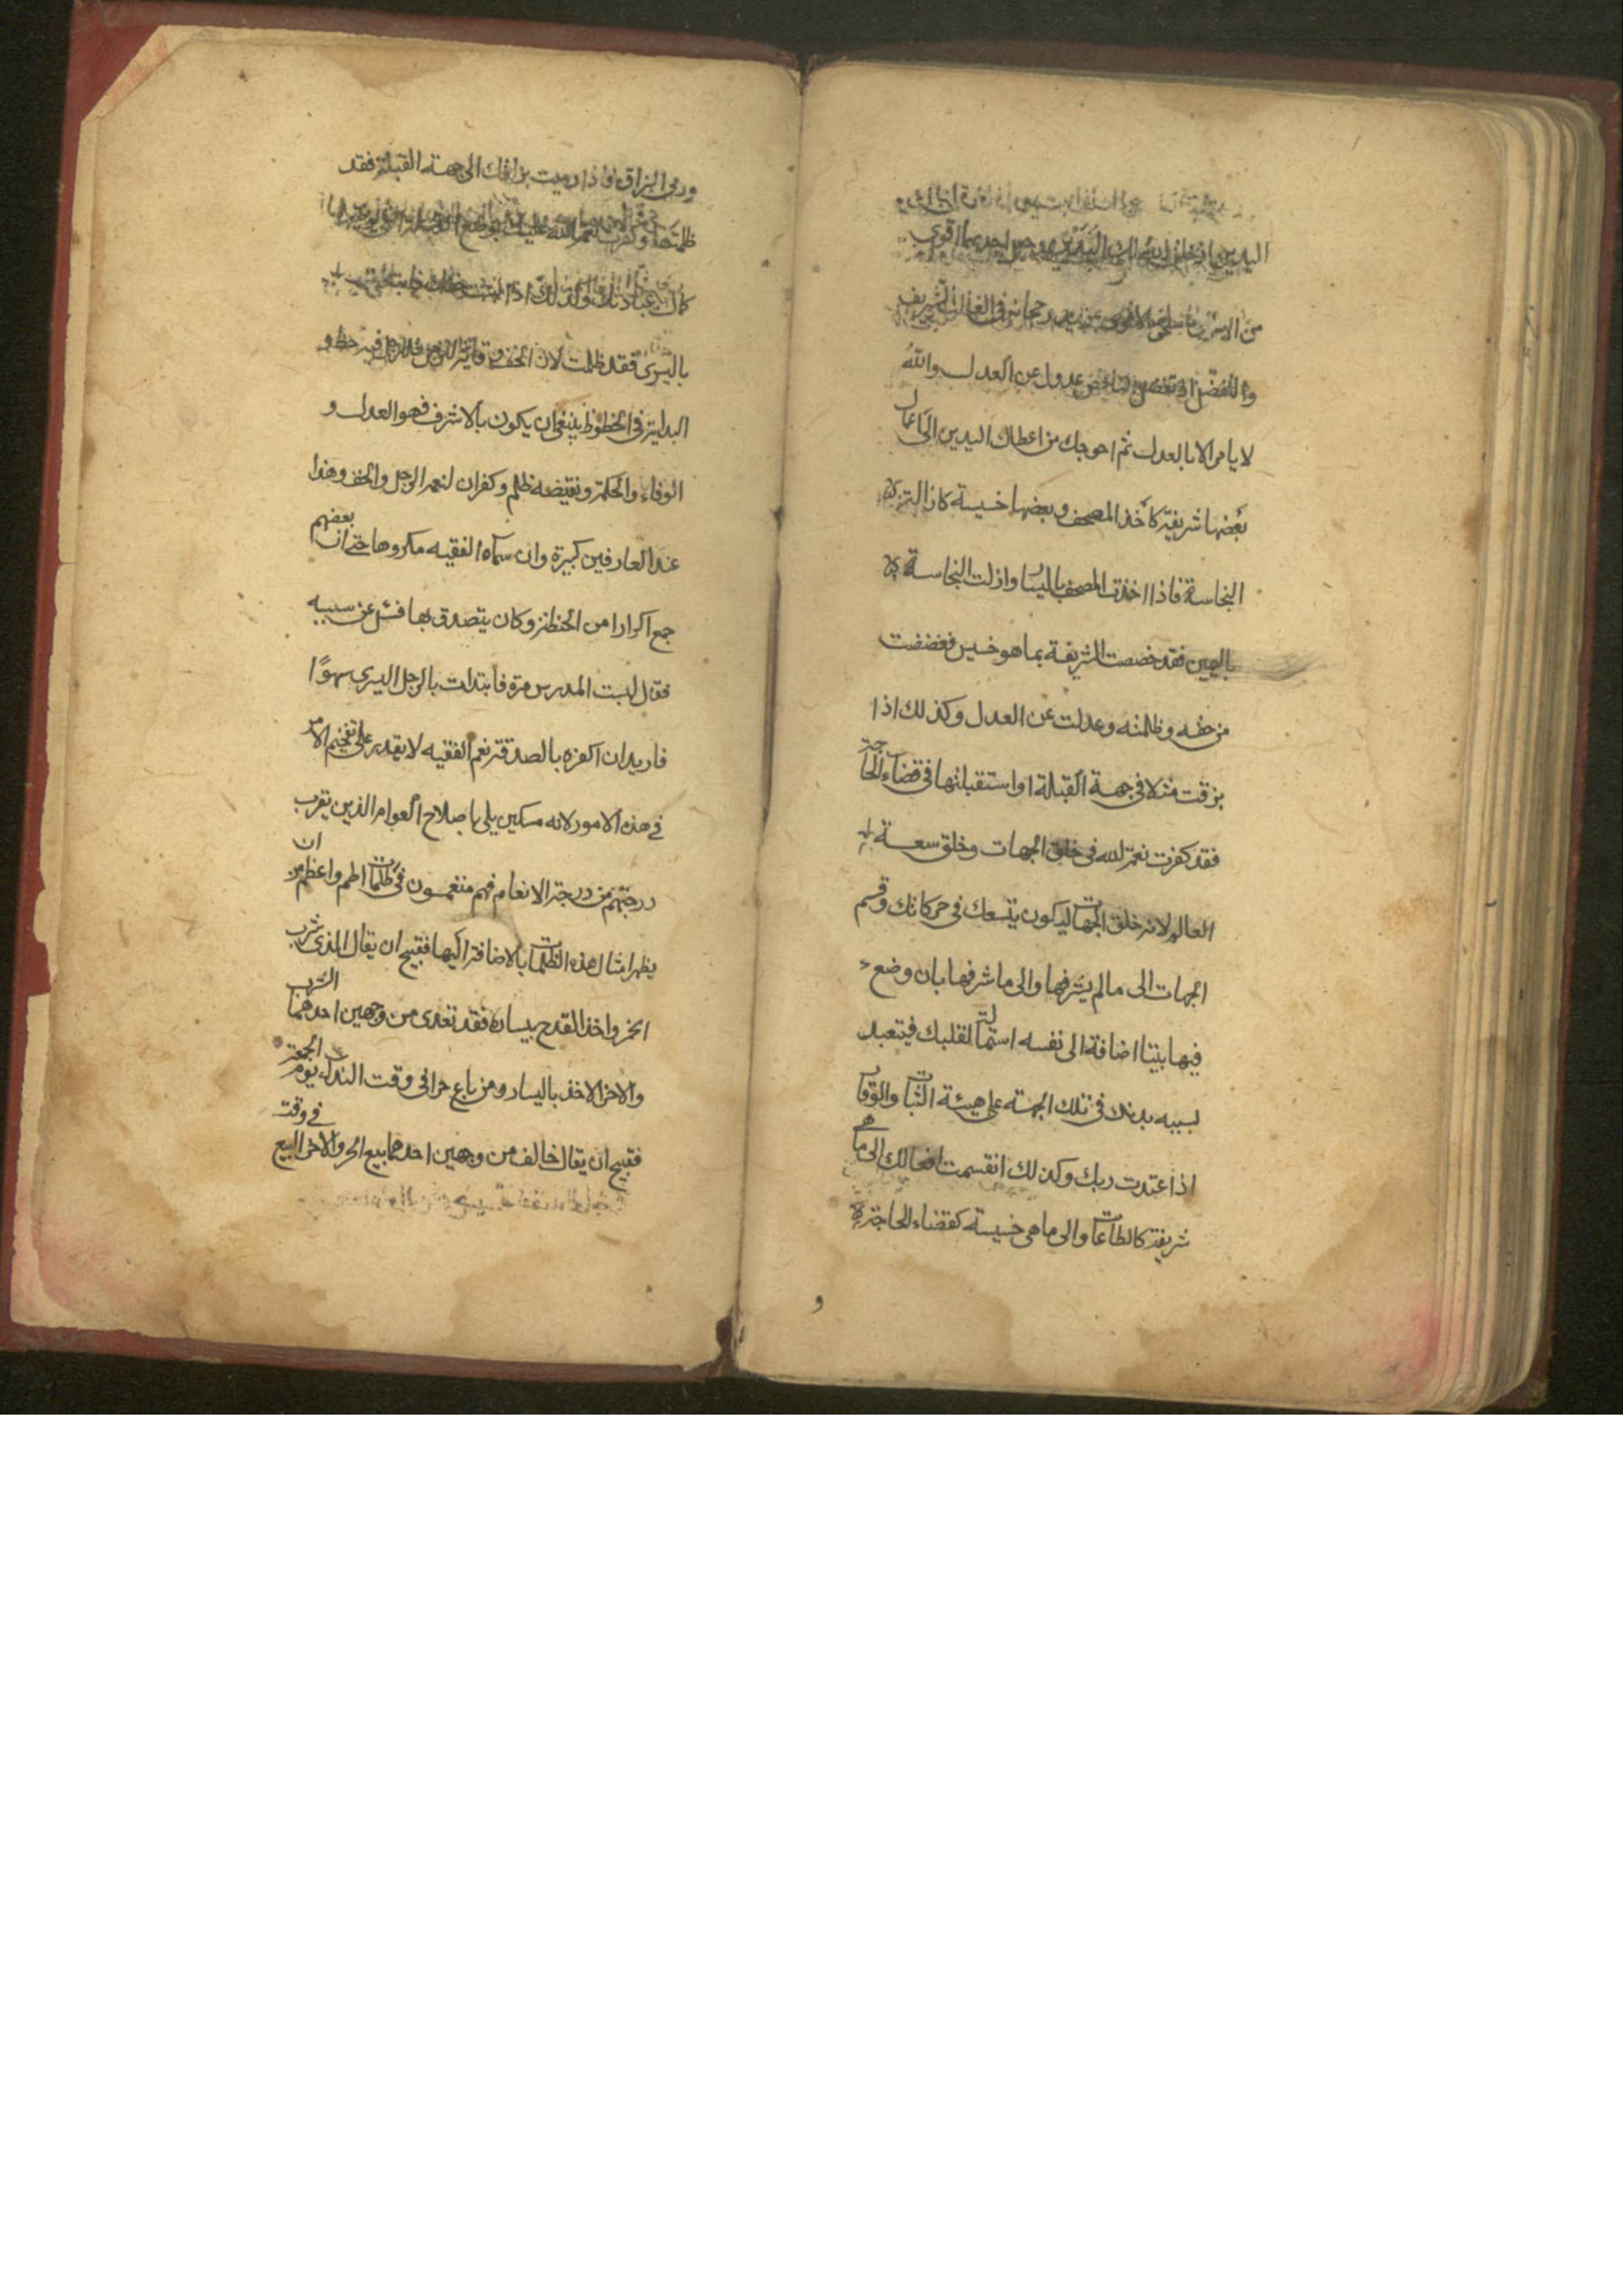 اليدين اذ خلق الله لك اليدين وجعل احديهما اقوى
من الاخرى فاستحق الاقوى بمزيد رجحانه في الغالب التشريف
والتفضيل اذ تفضيل الناقص عدول عن العدل والله
لا يامر الا بالعدل ثم احوجك من اعطاك اليدين الى اعمال
بعضها شريفة كأخذ المصحف وبعضها خسيسة كازالة
النجاسة فاذا اخذت المصحف باليسار وازلت النجاسة
باليمين فقد خصصت الشريفة بما هو خسيس فغضضت
من حقه وظلمته وعدلت عن العدل وكذلك اذا
بزقت مثلا في جهة القبلة او استقبلتها في قضاء الحاجة
فقد كفرت نعمة الله في خلق الجهات وخلق سعة
العالم لانه خلق الجهات ليكون متسعك في حركاتك وقسم
الجهات الى ما لم يشرفها والى ما شرفها بان وضع
فيها بيتا اضافة الى نفسه استمالة لقلبك فيتعبد
بسببه بدنك في تلك الجهة على هيئة الثبات والوقار
اذا عبدت ربك وكذلك انقسمت افعالك الى ما هي
شريفة كالطاعات والى ما هي خسيسة كقضاء الحاجة
و
ورمى البزاق فاذا رميت بزاقك الى جهة القبلة فقد
ظلمتها وكفرت نعمة الله عليك بوضع القبلة التي بوضعها
كمال عبادتك وكذلك اذا لبست خفك فابتدئت
باليسرى فقد ظلمت لان الخف وقاية للرجل فللرجل فيه حظ و
البداية في الحظوظ ينبغي ان يكون بالاشرف فهو العدل و
الوفاء والحكمة ونقيضه ظلم وكفران لنعمة الرجل والخف وهذا
عند العارفين كبيرة وان سماه الفقيه مكروها حتى ان بعضهم
جمع اكرارا من الحنطة وكان يتصدق بها فسئل عن سببه
فقال لبست المدرس مرة فابتدات بالرجل اليسرى سهوًا
فاريد ان اكفره بالصدقة نعم الفقيه لا يقدر على تفخيم الامر
في هذه الامور لانه مسكين بلي باصلاح العوام الذين يقرب
درجتهم من درجة الانعام فهم منغمسون في ظلمات اطم واعظم من ان
يظهر امثال هذه الظلمات بالاضافة اليها فقبيح ان يقال الذي شرب
الخمر واخذ القدح بيساره فقد تعدى من وجهين احدهما الشرب
والاخر الاخذ باليسار ومن باع خمرا في وقت النداء يوم الجمعة
فقبيح ان يقال خالف من وجهين احدهما بيع الخمر والاخر البيع في وقت